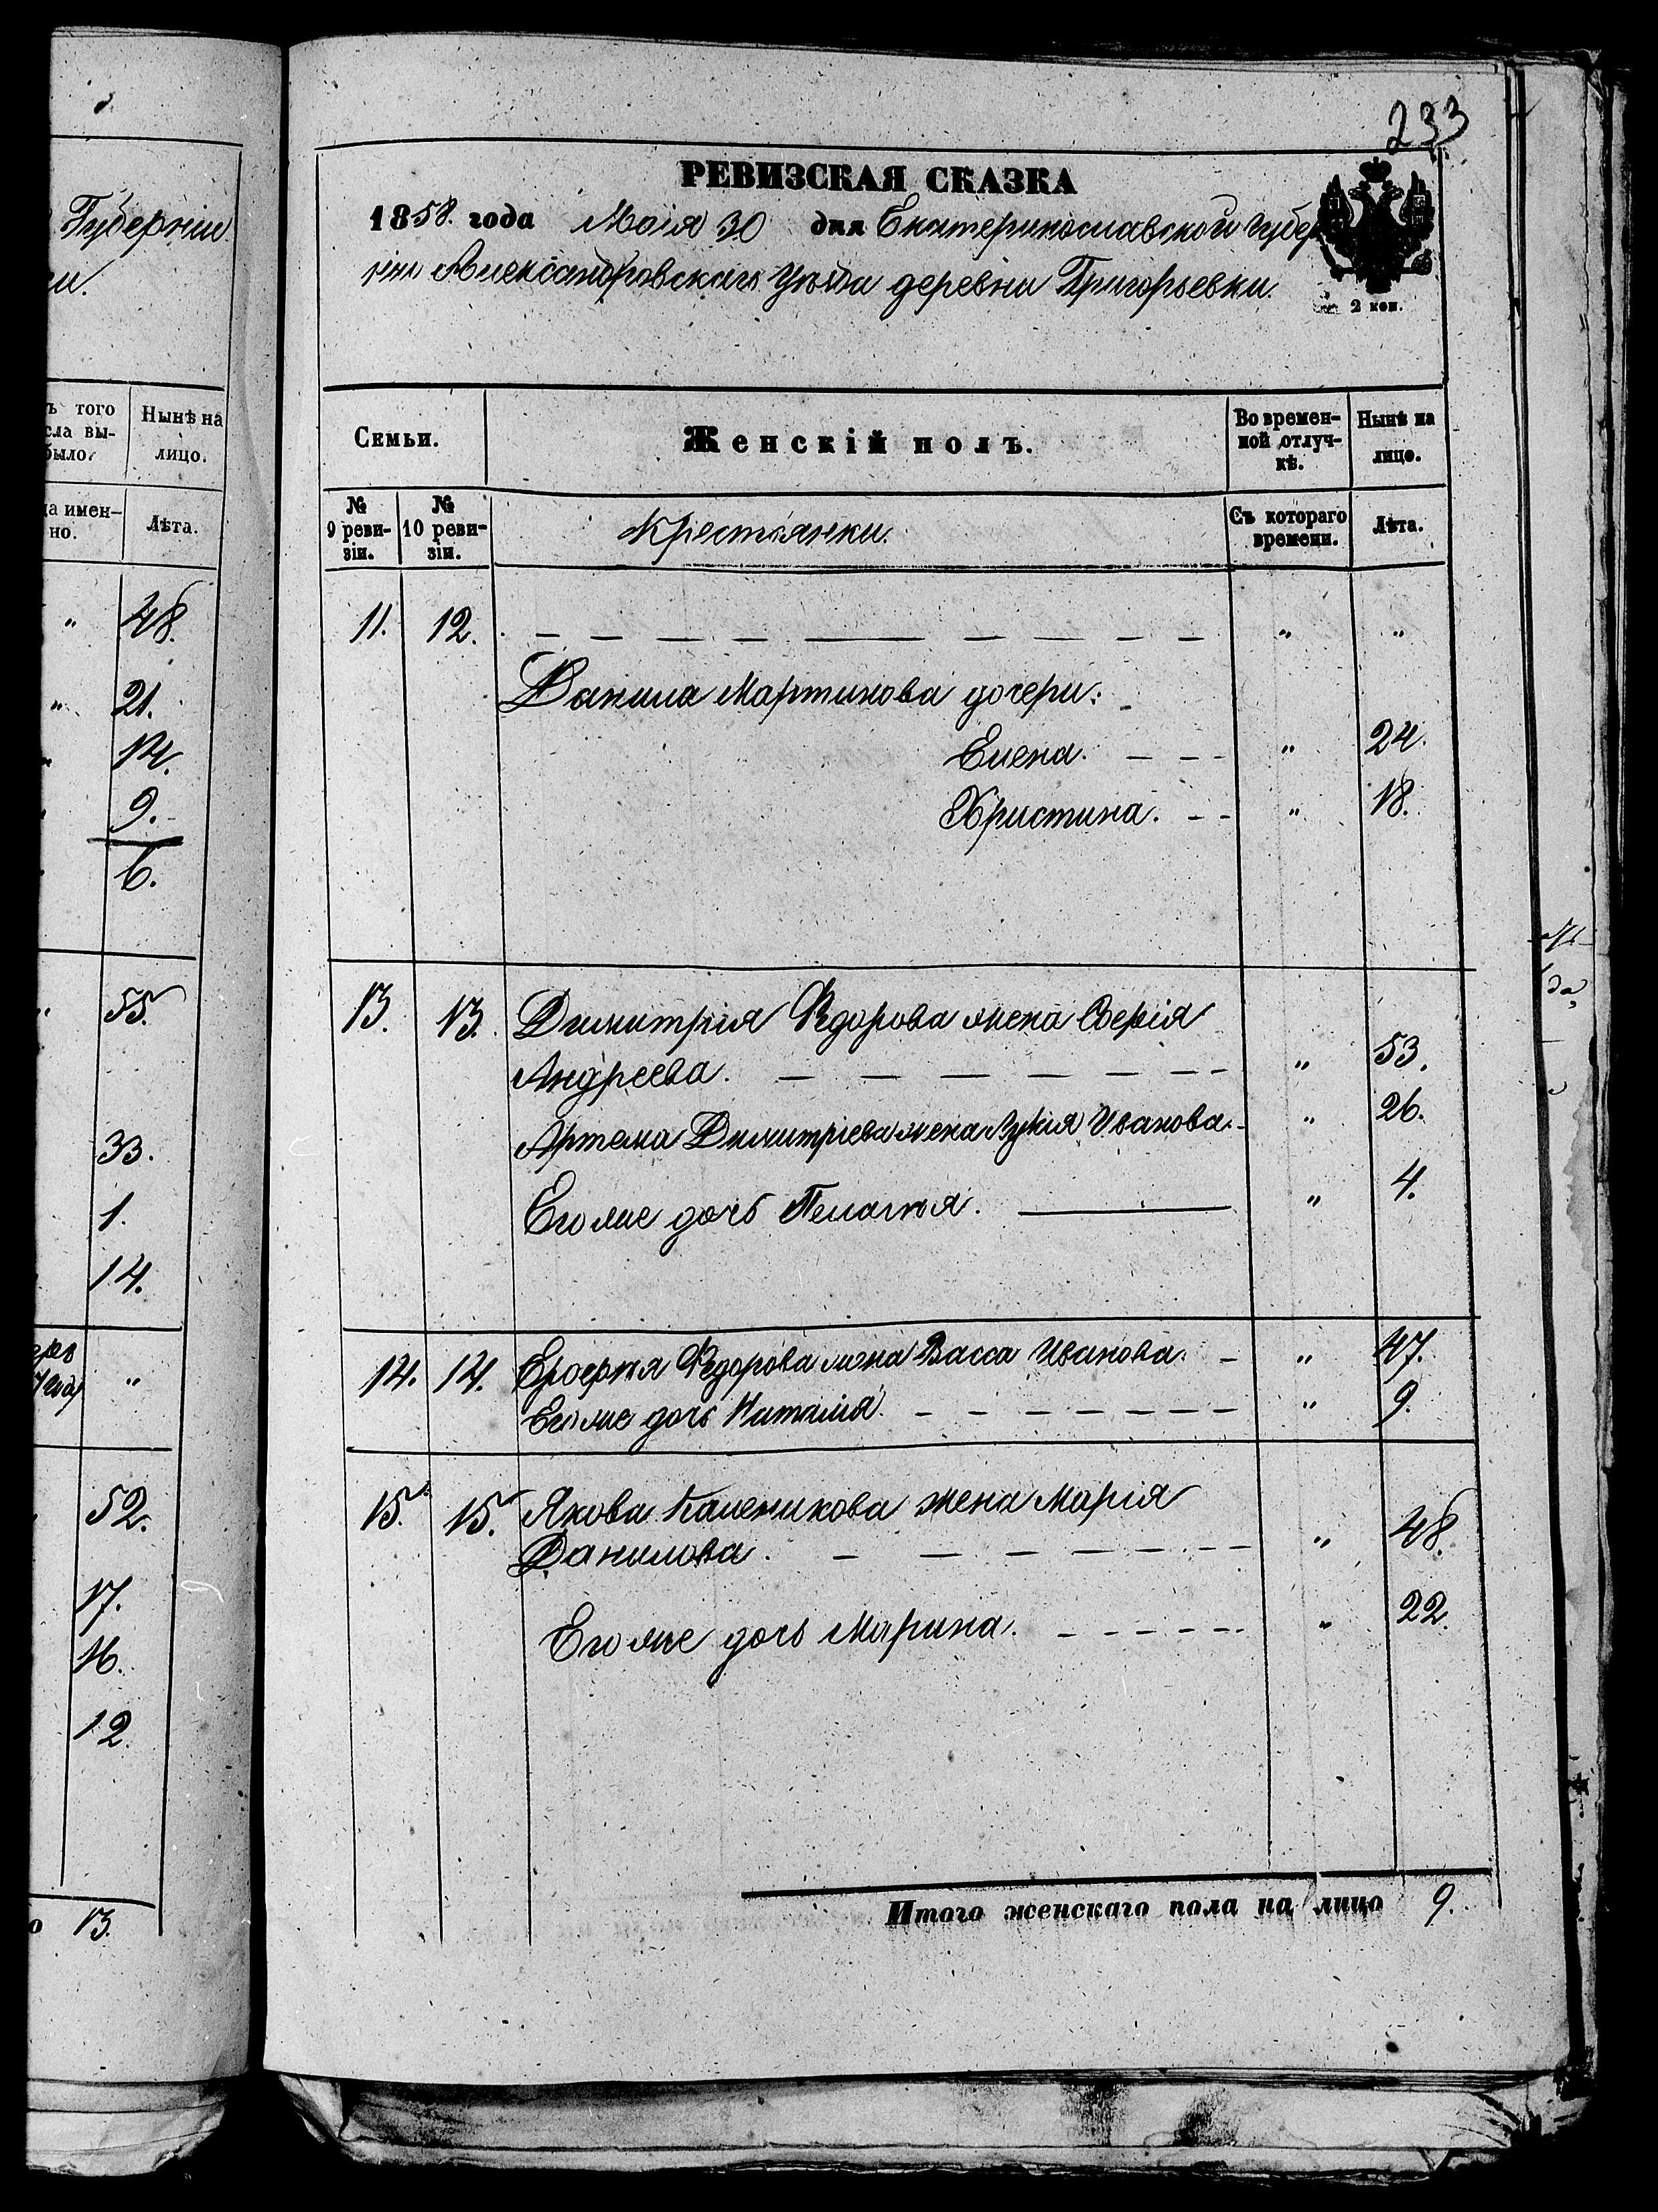 233
РЕВИЗСКАЯ СКАЗКА
1858. года Маія 30 дня Екатеринославской Губер
ніи Александровскаго Уезда деревни Григорьевки.
2 коп.
Губерніи.
ъ того
сла вы-
было
Нынѣ на
лицо.
да имен-
но.
Лѣта.
" 48.
" 21.
14.
9.
6.
" 55.
33.
1.
14.
"
52.
17.
16.
12
о 13.
Семьи.
Женскій полъ.
Во времен-
ной отлуч-
кѣ.
Нынѣ на
лицо.
№
9 реви-
зіи.
№
10 реви-
зіи.
Крестьянки.
Съ котораго
времени.
Лѣта.
11. 12. — — — — — — — — — " "
Данила Мартинова дочери:
Елена. — — — " 24.
Христина. — — " 18.
13. 13. Димитрія Федорова жена
Андреева. — — — — — — — " 53.
Артема Димитріева жена Лукія Иванова. " 26.
Его же дочь Пелагія. — " 4.
14. 14. Ерофея Федорова жена Васса Иванова. — " 47.
Его же дочь Наталія. — — — — — — — " 9.
15. 15. Якова Каленикова жена Марія
Данилова. — — — — — — — " 48.
Его же дочь Марина. — — — — — " 22.
Итого женскаго пола на лицо 9.